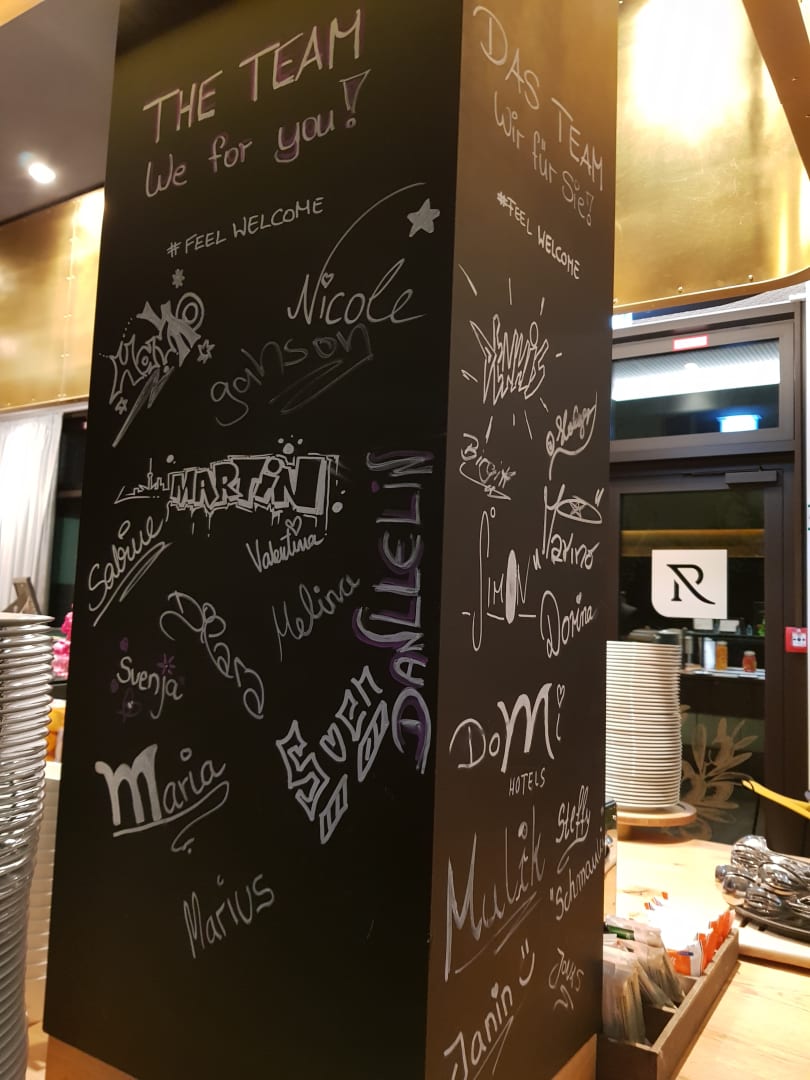 THE TEAM
We for you!
#FEEL WELCOME
Nicole
MARTIN
Sabine
Valentina
Melina
Svenja
Sven
Maria
Marius
DAS TEAM
Wir für Sie!
#FEEL WELCOME
DENNIS
Birgit
SIMON
Marino
Dorina
DoMi
HOTELS
Mulik
Steffy
"Schmausi
Janin
Jonas
R